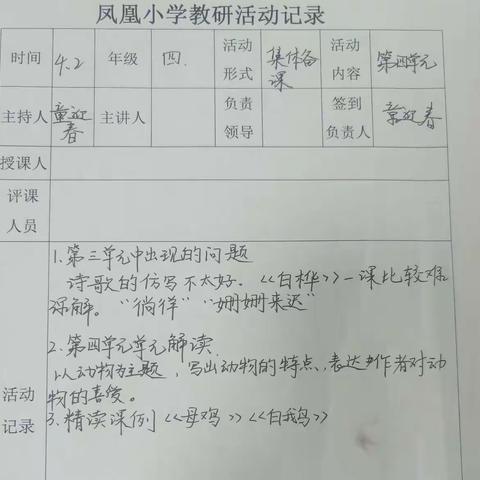 凤凰小学教研活动记录
时间 4.2 年级 四. 活动形式 集体备课 活动内容 第四单元
主持人 童迎春 主讲人 负责领导 签到负责人 童迎春
授课人
评课人员
活动记录
1.第三单元中出现的问题
诗歌的仿写不太好.《白桦》一课比较难
理解。“徜徉”“姗姗来迟”
2.第四单元单元解读.
以动物为主题,写出动物的特点,表达作者对动
物的喜爱。
3.精读课例《母鸡》《白鹅》